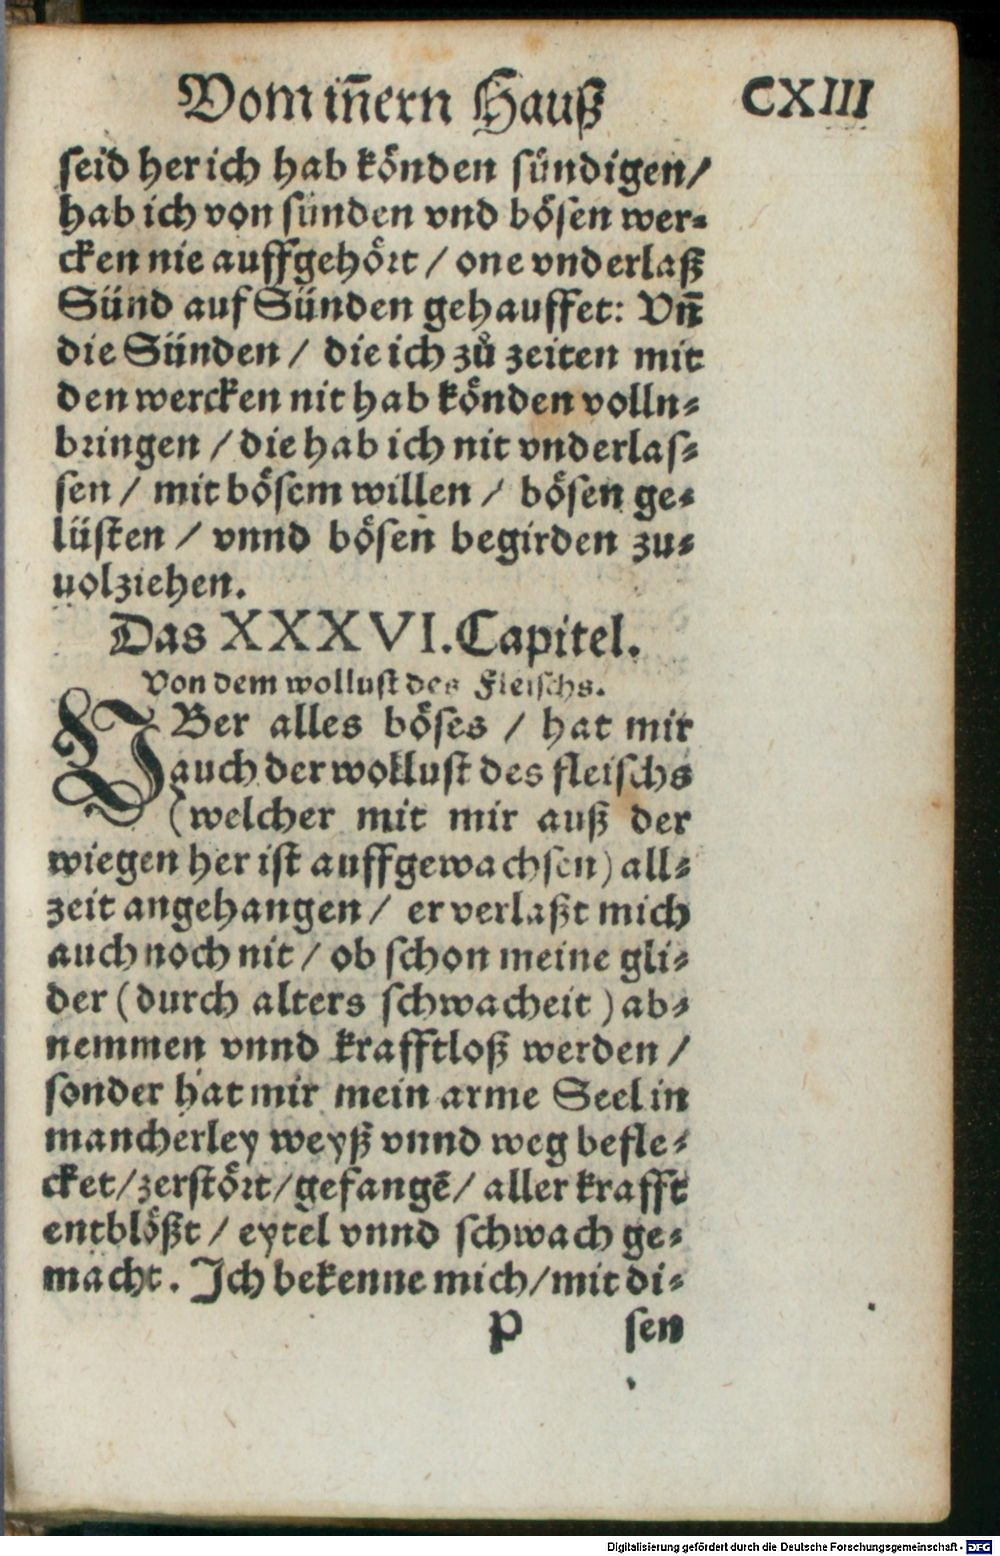 Vom iñern Hauß CXIII
seid her ich hab könden sündigen/
hab ich von sünden vnd bösen wer-
cken nie auffgehört / one vnderlaß
Sünd auf Sünden gehauffet: Vñ
die Sünden / die ich zů zeiten mit
den wercken nit hab könden volln-
bringen / die hab ich nit vnderlas-
sen / mit bösem willen / bösen ge-
lüsten / vnnd bösen begirden zu-
uolziehen.
Das XXXVI. Capitel.
Von dem wollust des Fleischs.
VBer alles böses / hat mir
auch der wollust des fleischs
(welcher mit mir auß der
wiegen her ist auffgewachsen) all-
zeit angehangen / er verlaßt mich
auch noch nit / ob schon meine gli-
der (durch alters schwacheit) ab-
nemmen vnnd krafftloß werden /
sonder hat mir mein arme Seel in
mancherley weyß vnnd weg befle-
cket/zerstört/gefangē/ aller krafft
entblößt / eytel vnnd schwach ge-
macht. Ich bekenne mich/mit di-
P sen
Digitalisierung gefördert durch die Deutsche Forschungsgemeinschaft - DFG